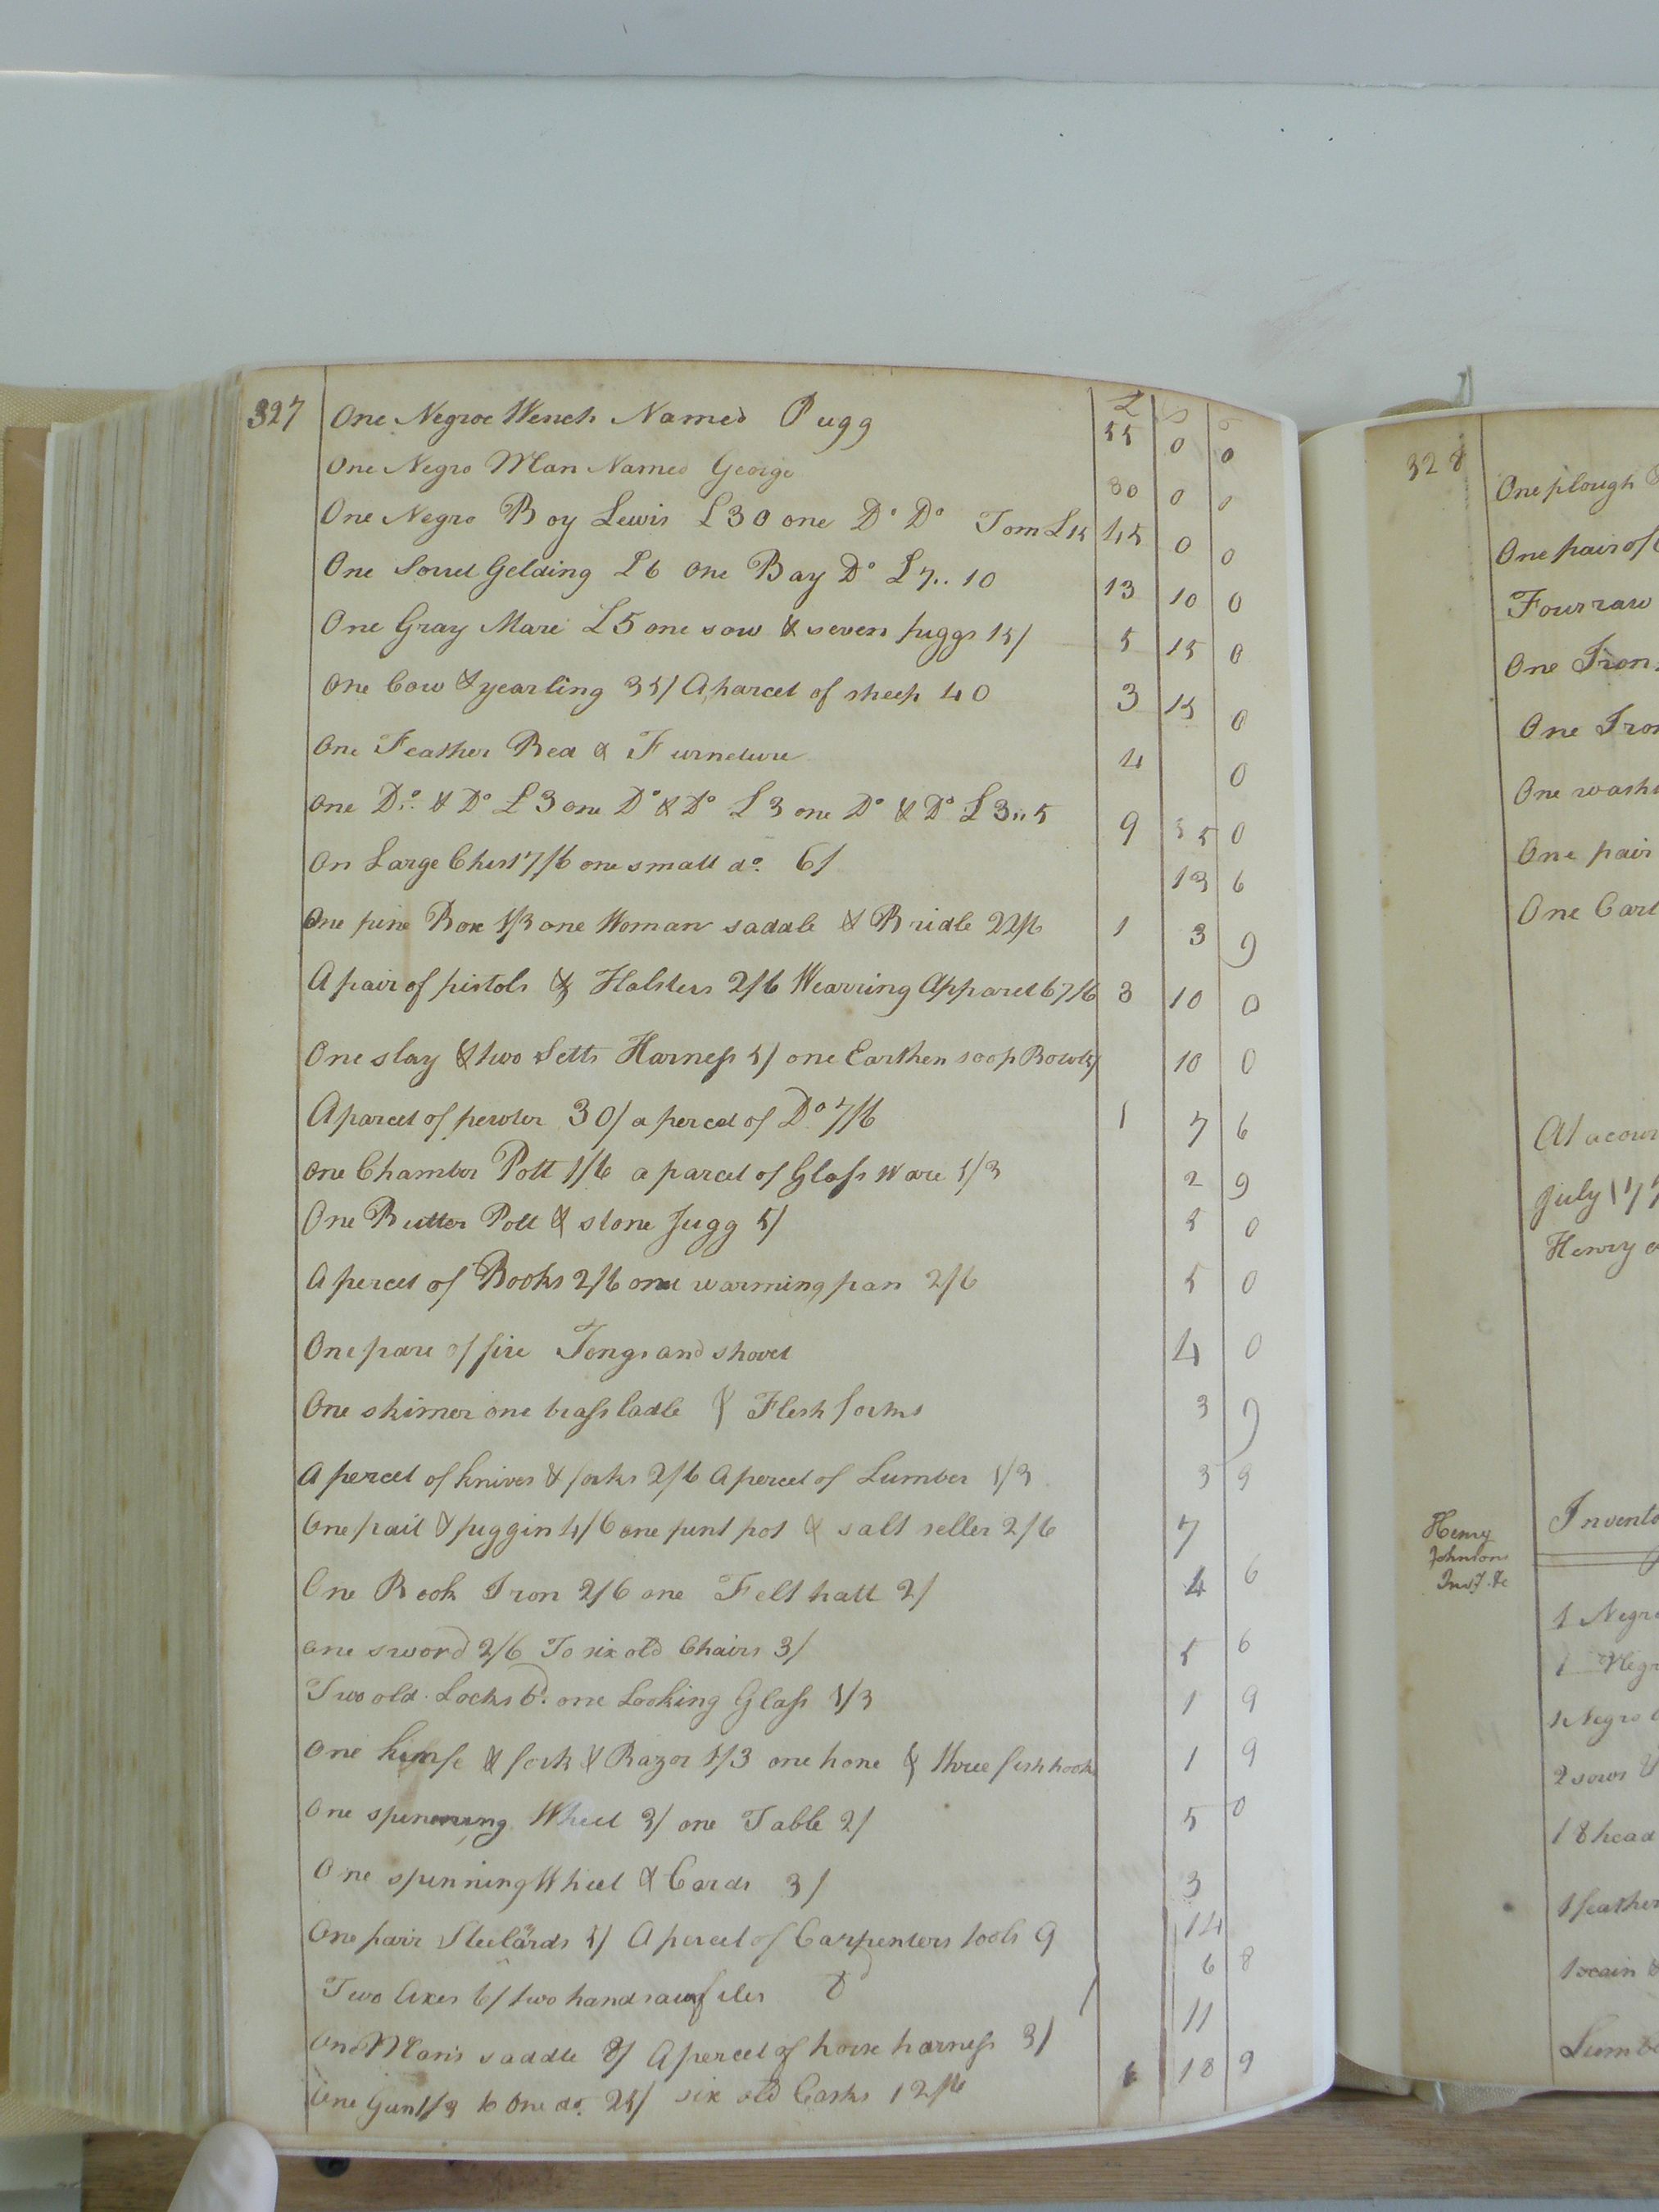 327 One Negroe Wench Named Pugg £ 55 0 0
One Negro Man Named George 80 0 0
One Negro Boy Lewis £30 one Do Do Tom £15 45 0 0
One Sorrel Gelding £6 One Bay Do £7..10 13 10 0
One Gray Mare £5 one sow & seven piggs 15/ 5 15 0
One Cow & yearling 35/ A parcel of sheep 40 3 15 0
One Feather Bed & Furneture 4 0
One Do. & Do £3 one Do & Do £3 one Do & Do £3,,5 9 5 0
On Large Chest 7/6 one small do. 6/ 13 6
One pine Box 1/3 one Woman saddle & Bridle 22/6 1 3 9
A pair of pistols & Holsters 2/6 Wearring Apparel 67/6 3 10 0
One slay & two Setts Harness 5/ one Earthen soop Bowl 5/ 10 0
A parcel of pewter 30/ a percel of Do 7/6 1 7 6
One Chamber Pott 1/6 a parcel of Glass Ware 1/3 2 9
One Butter Pott & stone Jugg 5/ 5 0
A percel of Books 2/6 one warming pan 2/6 5 0
One pare of fire Tongs and shovel 4 0
One skimer one brass ladle & Flesh forks 3 9
A percel of knives & forks 2/6 A percel of Lumber 1/3 3 9
One pail & piggin 4/6 one pint pot & salt seller 2/6 7
One Book Iron 2/6 one Felt hatt 2/ 4 6
One sword 2/6 To six old Chairs 3/ 5 6
Two old Locks 6d. one Looking Glass 1/3 1 9
One knife & fork & Razor 1/3 one hone & three fishhooks 1 9
One spinning Wheel 3/ one Table 2/ 5 0
One spinning Wheel & Cards 3/ 3
One pair Steelards 5/ A percel of Carpenters tools 9 14
Two Axes 6/ two handsaw files 8d 6 8
One Man's saddle 8/ A percel of horse harness 3/ 11
One Gun 1/3 to One do. 25/ six old Casks 12/6 18 9
328
One plough &
One pair of
Four raw
One Iron
One Iron
One
One pair
One Cart
At a cour
July 177
Henry
Henry
Johnson
Inv.y &c
Invento
1 Negro
1 Negro
1 Negro
2 sows &
18 head
1 feather
Lumb